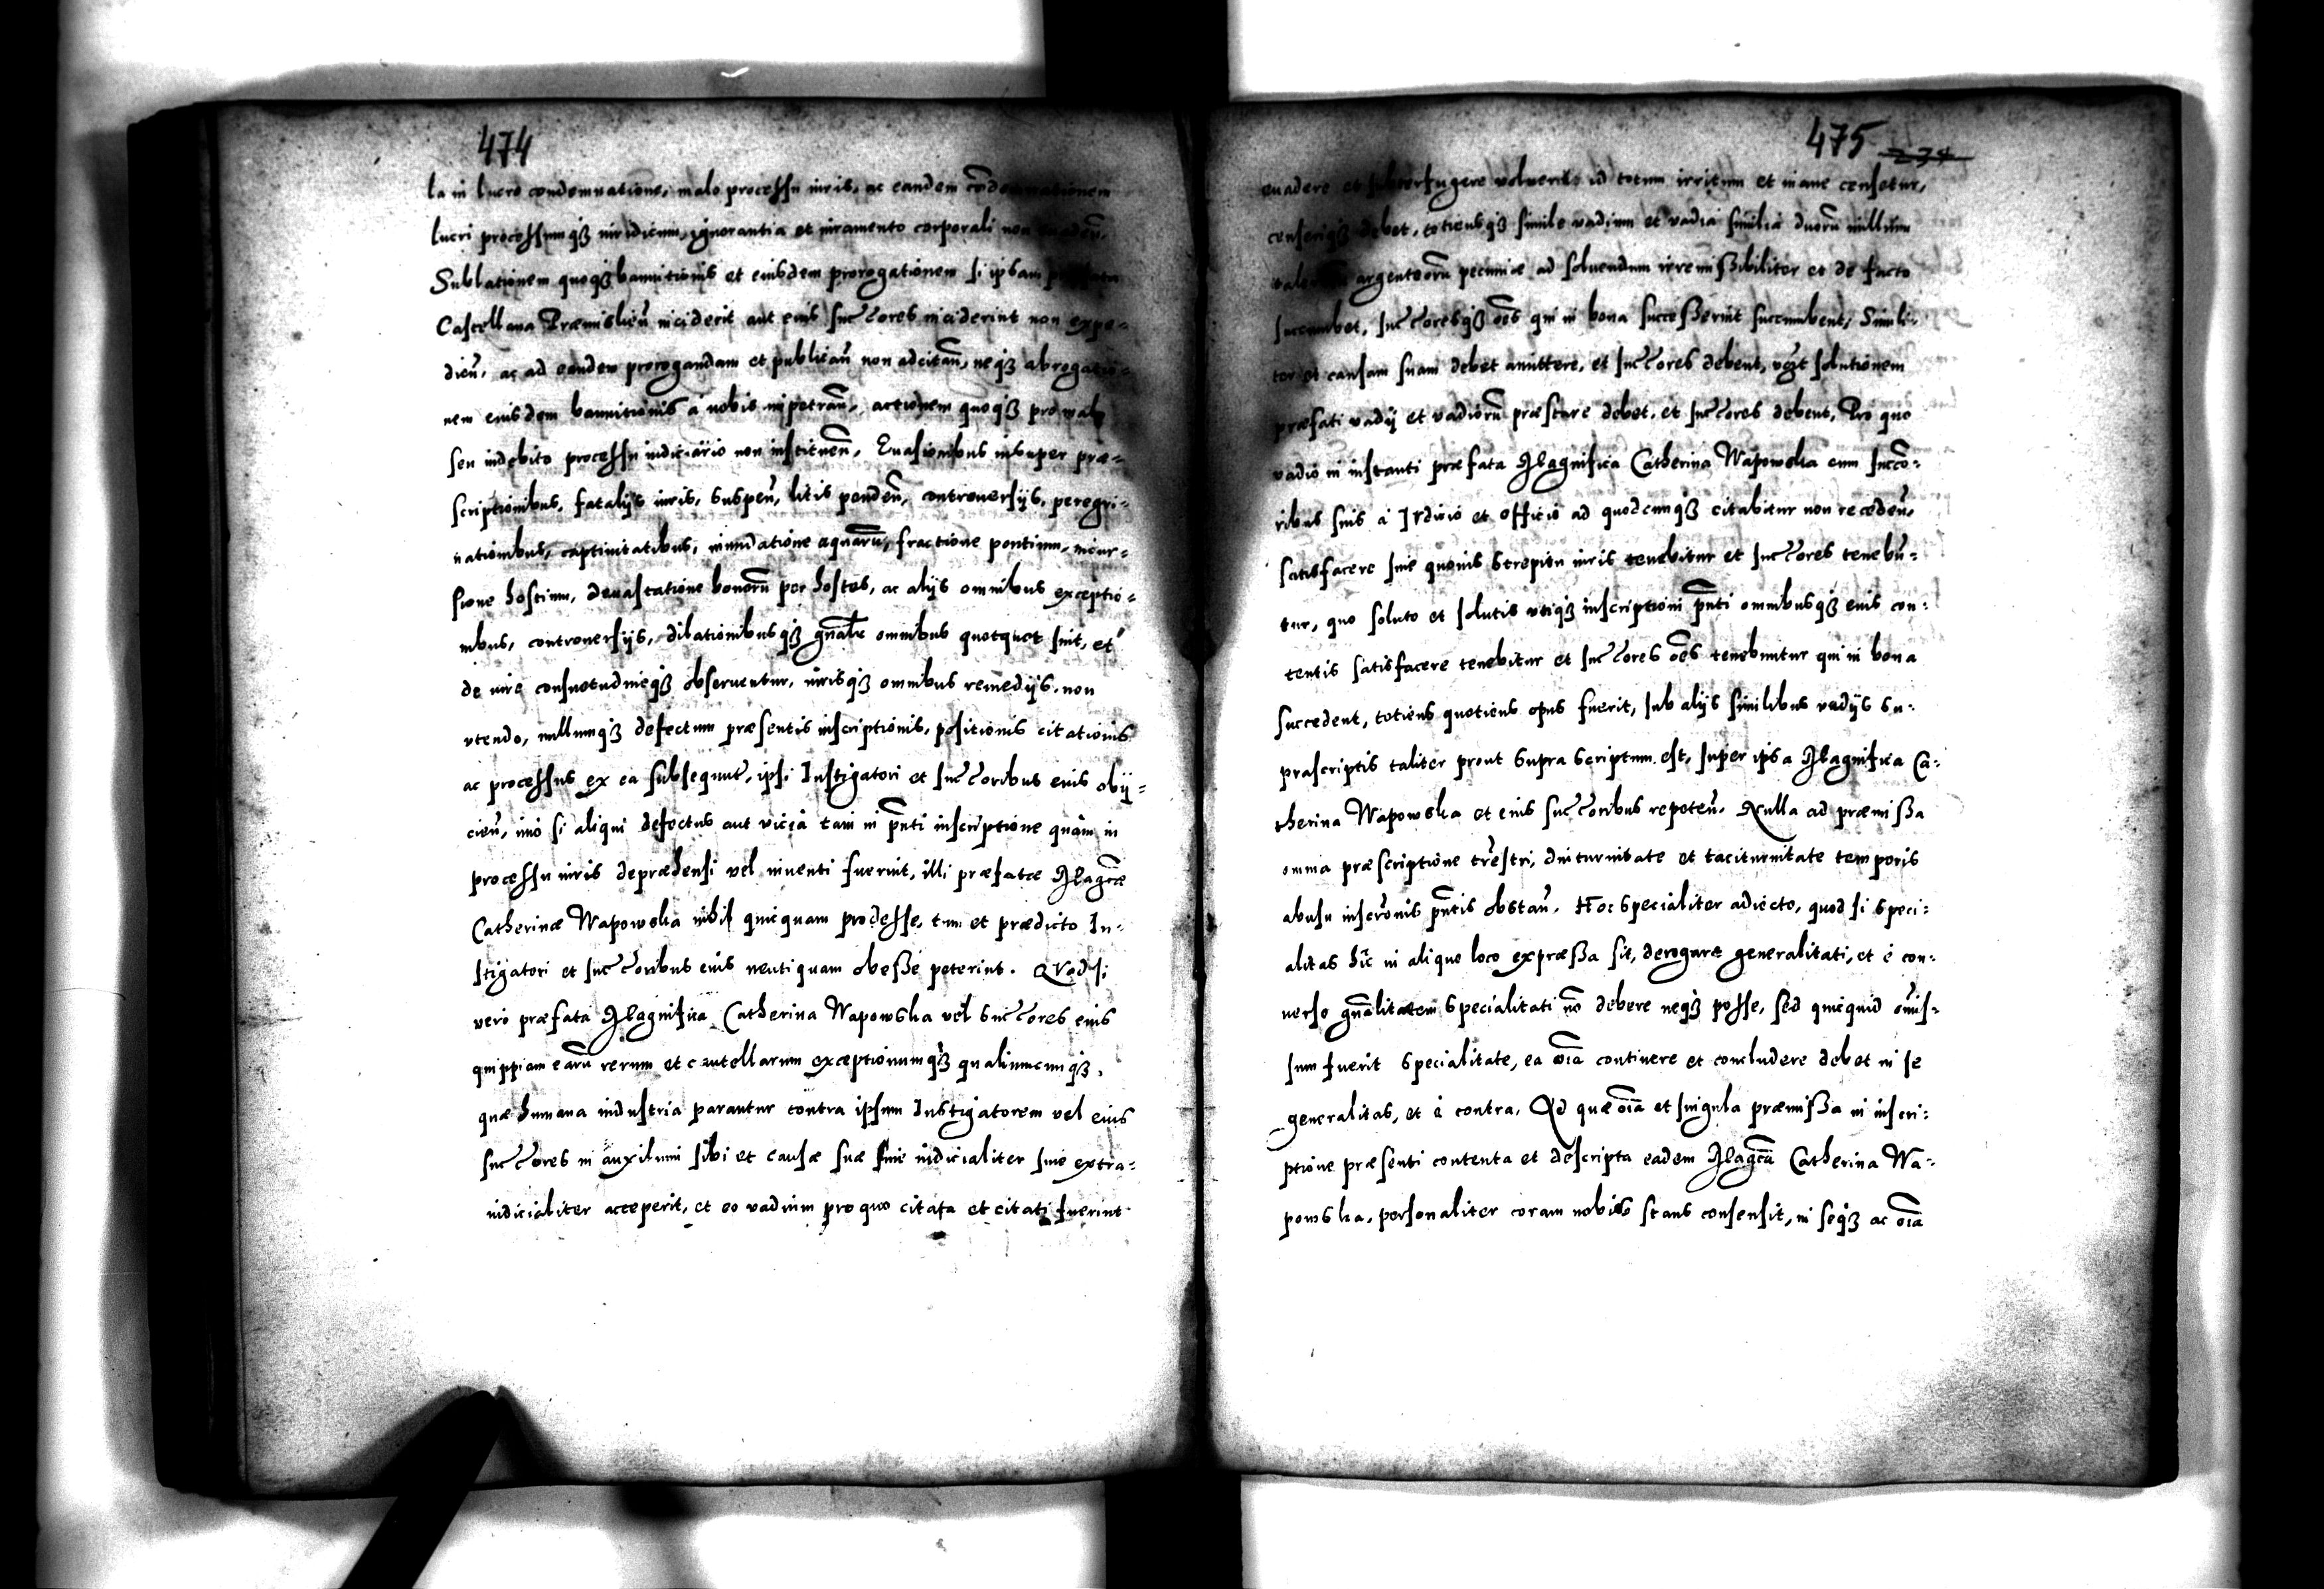 474
la in lucro condemnatione, malo processu iuris, ac eandem cōdemnationem
lucri processumq̃ iuridicum, ignorantia et iuramento corporali non
Sublationem quoq̃ bannitionis et eiusdem prorogationem si ipsam
Castellana Præmislieñ inciderit aut eius succ̃ores inciderint non expe-
dieñ, ac ad eandem prorogandam et publicañ non adcitañ, neq̃ abrogatio-
nem eiusdem bannitionis à nobis impetrañ, actionem quoq̃ pro malo
seu indebito processu iudiciario non instituen̄, Euasionibus insuper præ-
scriptionibus, fatalijs iuris, suspeñ, litis pendeñ, controuersijs, peregri-
nationibus, captiuitatibus, inundatione aquarū, fractione pontium, incur-
sione hostium, deuastatione bonorū per hostes, ac alijs omnibus exceptio-
nibus, controuersijs, dilationibusq̃ gñaliter omnibus quotquot sint, et
de iure consuetudineq̃ obseruentur, iurisq̃ omnibus remedijs non
vtendo, nullumq̃ defectum præsentis inscriptionis, positionis citationis
ac processus ex ea subsequut̃, ipsi Instigatori et succ̃oribus eius obij-
cieñ, imò si aliqui defectus aut vicia tam in p̃nti inscriptione quàm in
processu iuris depræhensi vel inuenti fuerint, illi præfatæ Mag̃cæ
Catherinæ Wapowska nihil quicquam prodesse, tum et prædicto In-
stigatori et succ̃oribus eius neutiquam obesse poterint. QVod si
verò præfata Magnifica Catherina Wapowska vel succ̃ores eius
quippiam earū rerum et cautellarum exceptionumq̃ qualiumcunq̃,
quæ humana industria parantur contra ipsum Instigatorem vel eius
succ̃ores in auxilium sibi et causæ suæ siue iudicialiter siue extra-
iudicialiter acceperit, et eo vadium pro quo citata et citati fuerint
475 234
euadere et subterfugere voluerit id totum irritum et inane censetur,
censeriq̃ debet, totiensq̃ simile vadium et vadia similia duorū millium
argenteorū pecuniæ ad soluendum irremissibiliter et de facto
succumbet, succ̃oresq̃ oẽs qui in bona successerint succumbent, Simili-
ter et causam suam debet amittere, et succ̃ores debent, solutionem
præfati vadij et vadiorū præstare debet, et succ̃ores debent, Pro quo
vadio in instanti præfata Magnifica Catherina Wapowska cum succo-
ribus suis à Iudicio et officio ad quodcunq̃ citabitur non recedeñ,
satisfacere sine quouis strepitu iuris tenebitur et succ̃ores tenebū-
tur, quo soluto et solutis vtiq̃ inscriptioni p̃nti omnibusq̃ eius con-
tentis satisfacere tenebitur et succ̃ores oẽs tenebuntur qui in bona
succedent, totiens quotiens opus fuerit, sub alijs similibus vadijs su-
prascriptis taliter prout supra scriptum est, super ipsa Magnifica Ca-
therina Wapowska et eius succ̃oribus repeteñ. Nulla ad præmissa
omnia præscriptione trẽstri, diuturnitate et taciturnitate temporis
abusu inscrõnis p̃ntis obstañ. Hoc specialiter adiecto, quod si speci-
alitas hic̃ in aliquo loco expræssa sit, derogare generalitati, et è con-
uerso gñalitatem specialitati nõ debere neq̃ posse, sed quicquid omis-
sum fuerit specialitate, ea oĩa continere et concludere debet in se
generalitas, et è contra. Ad quæ oĩa et singula præmissa in inscri-
ptione præsenti contenta et descripta eadem Mag̃ca Catherina Wa-
powska, personaliter coram nobis stans consensit, in seq̃ ac oĩa